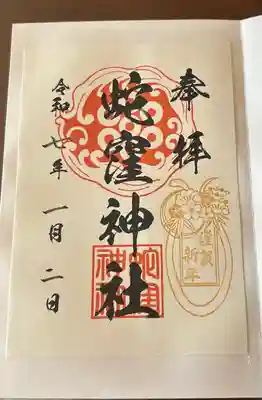 奉拝
蛇窪神社
謹賀
新年
令和七年一月二日
蛇窪
神社